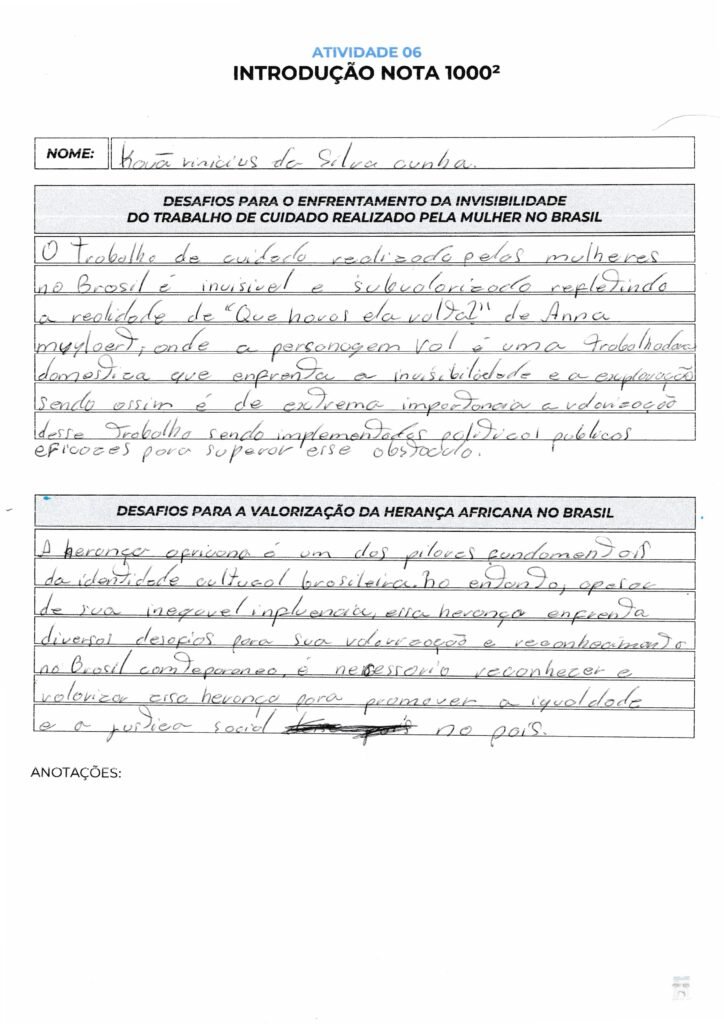 ATIVIDADE 06
INTRODUÇÃO NOTA 1000²
NOME: Kauã vinicius da Silva cunha.
DESAFIOS PARA O ENFRENTAMENTO DA INVISIBILIDADE
DO TRABALHO DE CUIDADO REALIZADO PELA MULHER NO BRASIL
O Trabalho de cuidado realizado pelas mulheres
no Brasil é invisivel e subvalorizado refletindo
a realidade de "Que horas ela volta?" de Anna
muylaert, onde a personagem Val é uma trabalhadora
domestica que enfrenta a invisibilidade e a exploração
sendo assim é de extrema importancia a valorização
desse Trabalho sendo implementadas politicas publicas
eficazes para superar esse obstaculo.
DESAFIOS PARA A VALORIZAÇÃO DA HERANÇA AFRICANA NO BRASIL
A herança africana é um dos pilares fundamentais
da identidade cultural brasileira. no entanto, apesar
de sua inegavel influencia, essa herança enfrenta
diversos desafios para sua valorização e reconhecimento
no Brasil comteporaneo, é necessario reconhecer e
valorizar essa herança para promover a igualdade
e a justica social no país.
ANOTAÇÕES: